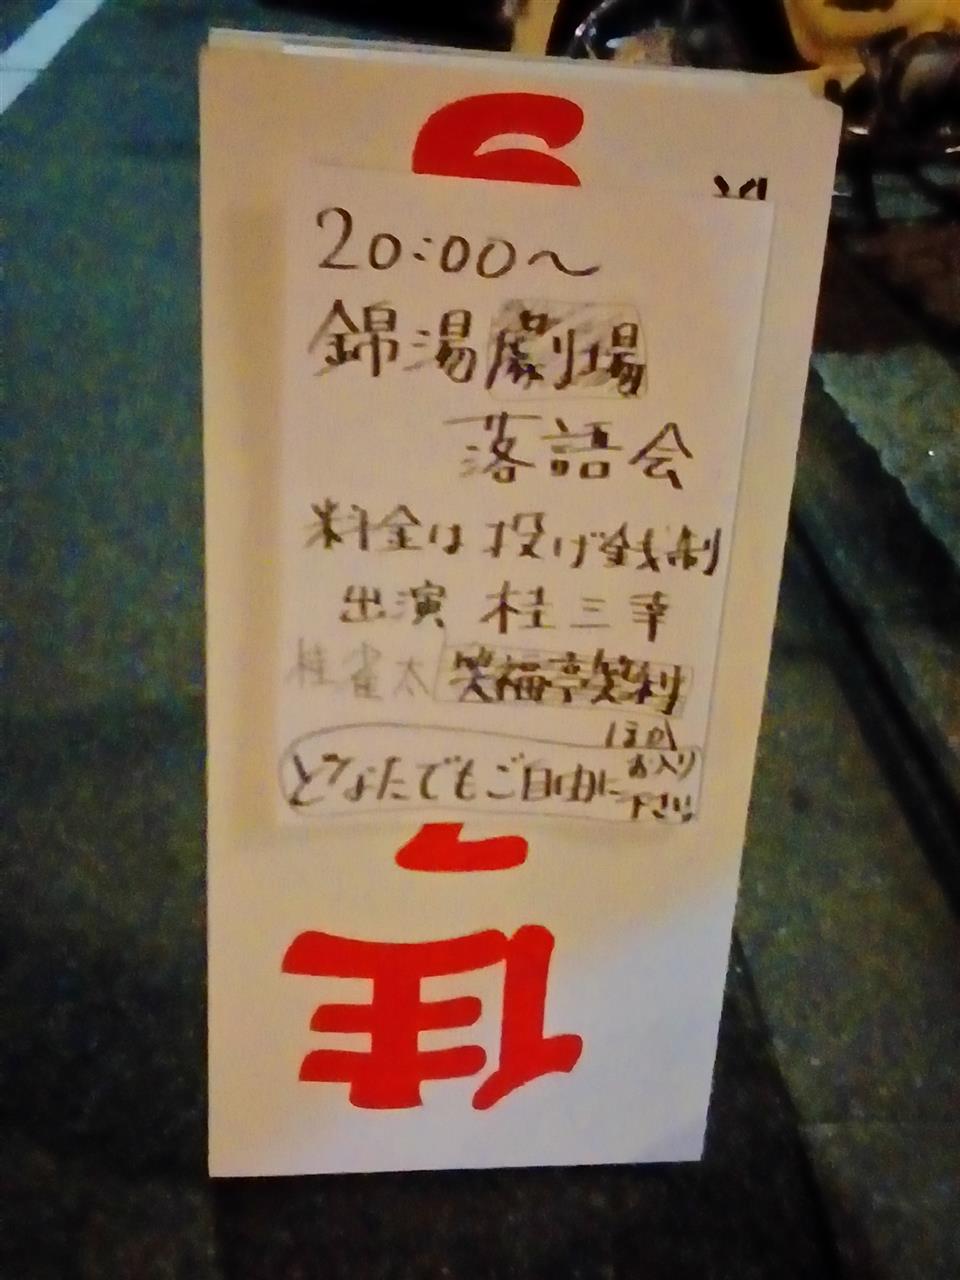 20:00～
錦湯劇場
落語会
料金は投げ銭制
出演 桂三幸
桂雀太 笑福亭笑利
ほか
どなたでもご自由にお入り下さい